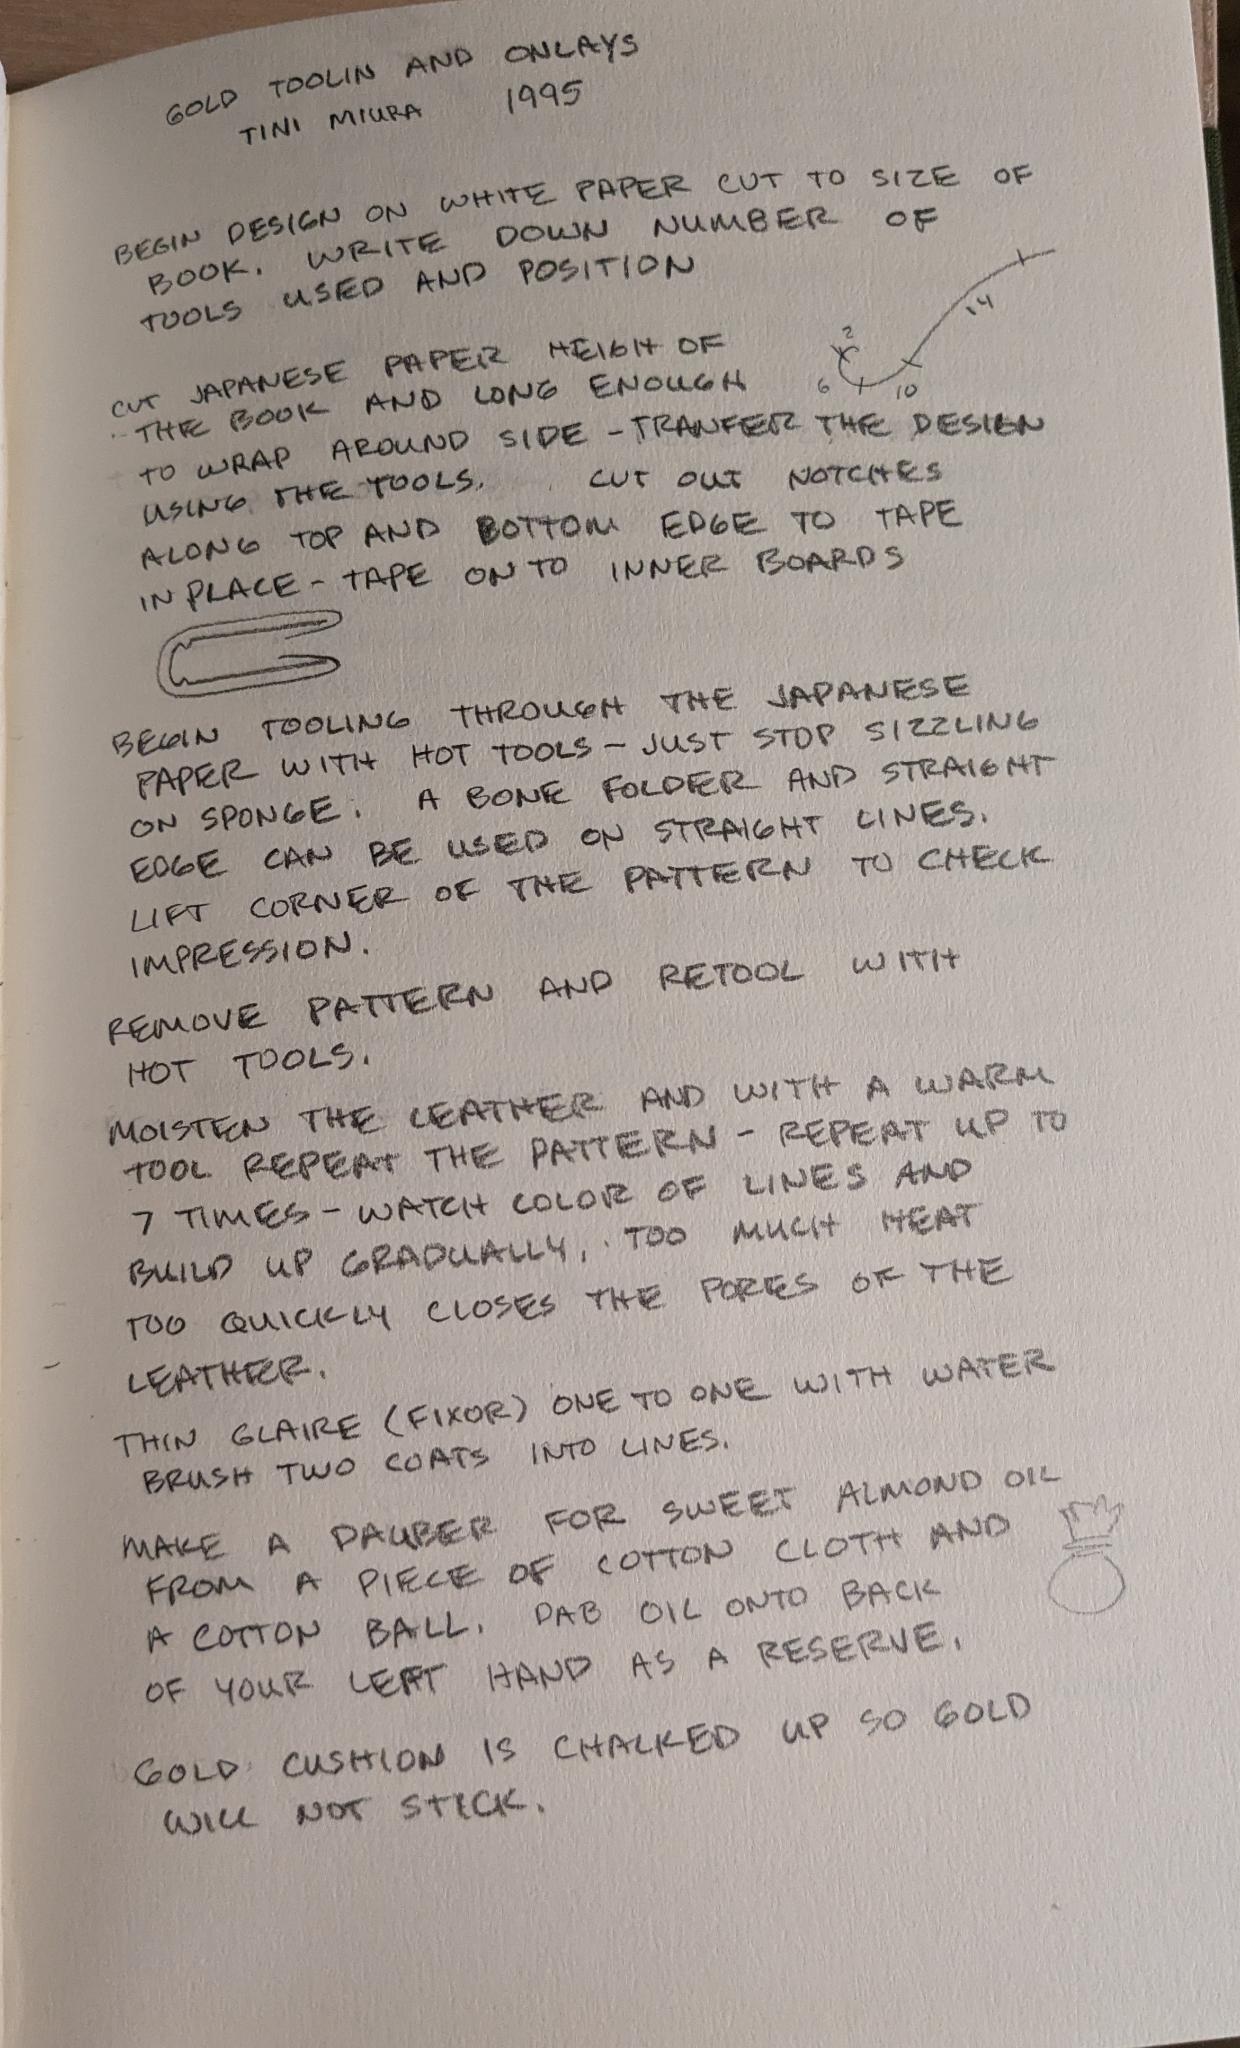 GOLD TOOLIN AND ONLAYS
TINI MIURA 1995
BEGIN DESIGN ON WHITE PAPER CUT TO SIZE OF
BOOK. WRITE DOWN NUMBER OF
TOOLS USED AND POSITION
2
6
10
14
CUT JAPANESE PAPER HEIGH OF
THE BOOK AND LONG ENOUGH
TO WRAP AROUND SIDE - TRANFER THE DESIGN
USING THE TOOLS. CUT OUT NOTCHES
ALONG TOP AND BOTTOM EDGE TO TAPE
IN PLACE - TAPE ON TO INNER BOARDS
BEGIN TOOLING THROUGH THE JAPANESE
PAPER WITH HOT TOOLS - JUST STOP SIZZLING
ON SPONGE. A BONE FOLDER AND STRAIGHT
EDGE CAN BE USED ON STRAIGHT LINES.
LIFT CORNER OF THE PATTERN TO CHECK
IMPRESSION.
REMOVE PATTERN AND RETOOL WITH
HOT TOOLS.
MOISTEN THE LEATHER AND WITH A WARM
TOOL REPEAT THE PATTERN - REPEAT UP TO
7 TIMES - WATCH COLOR OF LINES AND
BUILD UP GRADUALLY. TOO MUCH HEAT
TOO QUICKLY CLOSES THE PORES OF THE
LEATHER.
THIN GLAIRE (FIXOR) ONE TO ONE WITH WATER
BRUSH TWO COATS INTO LINES.
MAKE A DAUBER FOR SWEET ALMOND OIL
FROM A PIECE OF COTTON CLOTH AND
A COTTON BALL. DAB OIL ONTO BACK
OF YOUR LEFT HAND AS A RESERVE.
GOLD CUSHION IS CHALKED UP SO GOLD
WILL NOT STICK.